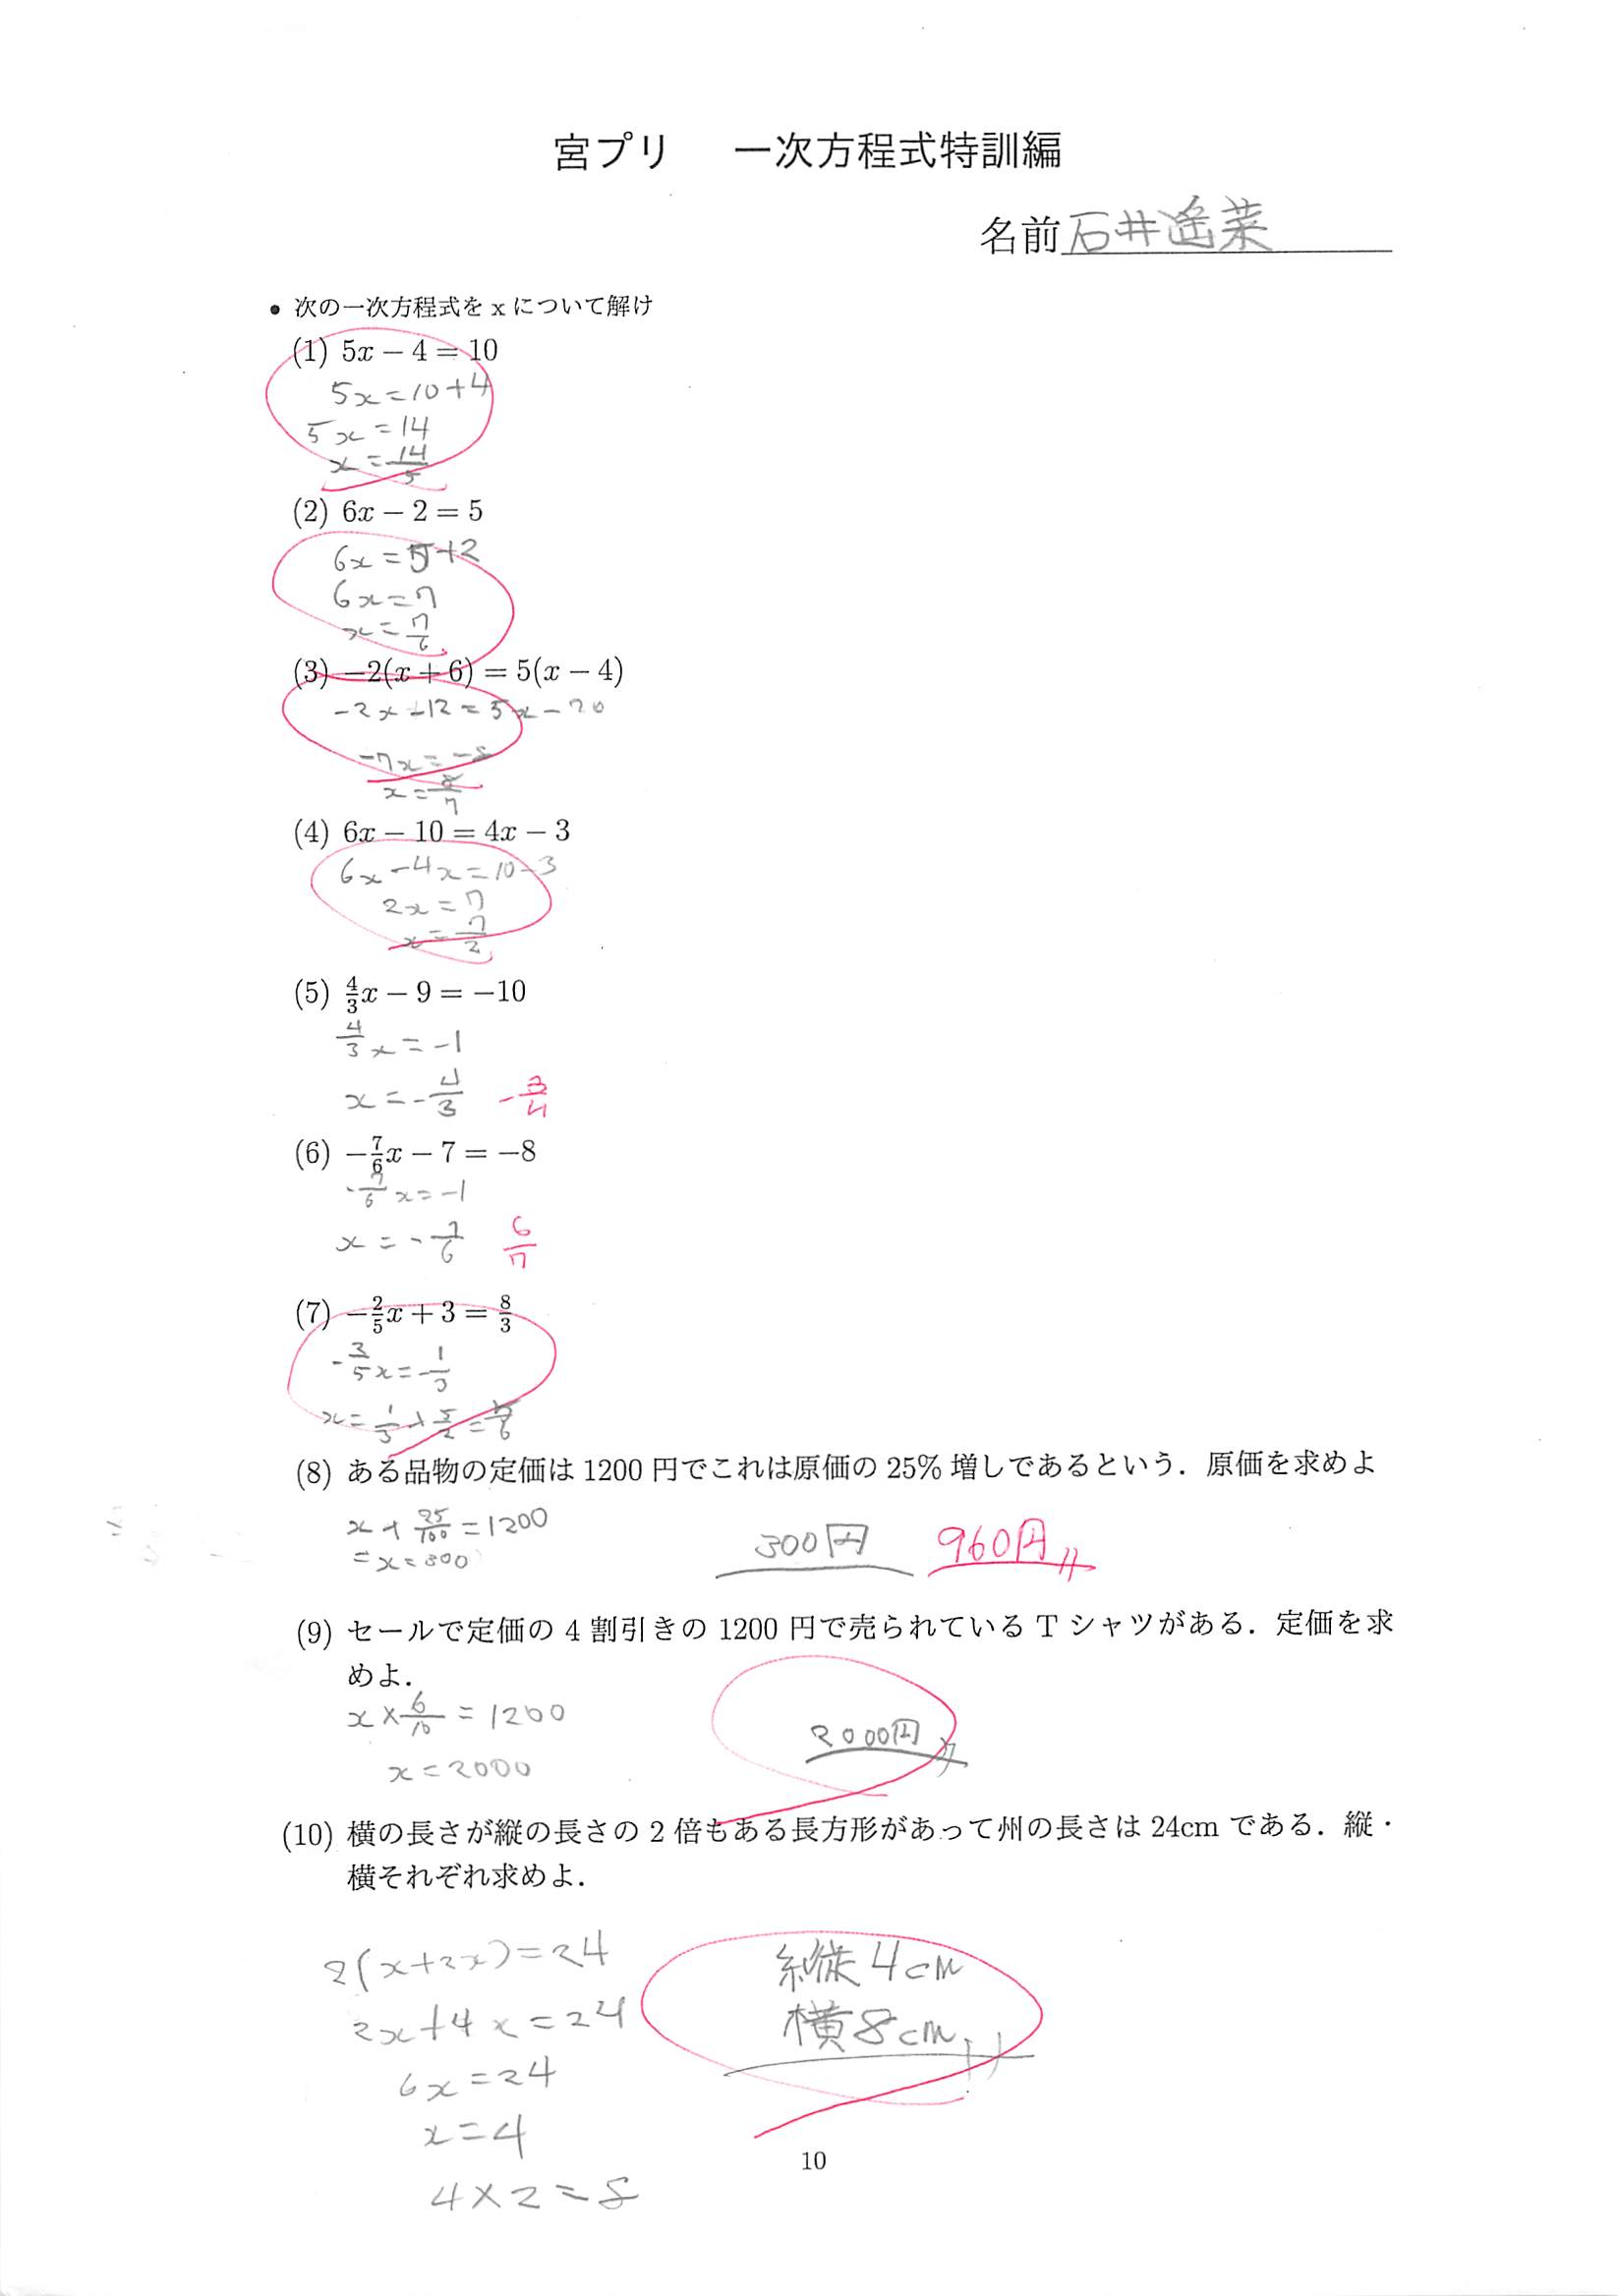 宮プリ 一次方程式特訓編
名前 石井遥菜
• 次の一次方程式を x について解け
(1) 5x − 4 = 10
5x = 10 + 4
5x = 14
x = 14/5
(2) 6x − 2 = 5
6x = 5 + 2
6x = 7
x = 7/6
(3) −2(x + 6) = 5(x − 4)
-2x - 12 = 5x - 20
-7x = -8
x = 8/7
(4) 6x − 10 = 4x − 3
6x - 4x = 10 - 3
2x = 7
x = 7/2
(5) 4/3 x − 9 = −10
4/3 x = -1
x = -4/3 -3/4
(6) −7/6 x − 7 = −8
-7/6 x = -1
x = -7/6 6/7
(7) −2/5 x + 3 = 8/3
x = 1/3 × 5/2 = 5/6
(8) ある品物の定価は 1200 円でこれは原価の 25% 増しであるという．原価を求めよ
x + 25/100 = 1200
= x = 300
300円 960円
(9) セールで定価の 4 割引きの 1200 円で売られている T シャツがある．定価を求
めよ．
x × 6/10 = 1200
2000円
x = 2000
(10) 横の長さが縦の長さの 2 倍もある長方形があって州の長さは 24cm である．縦・
横それぞれ求めよ．
2(x+2x) = 24
2x + 4x = 24
6x = 24
x = 4
4 × 2 = 8
縦 4cm
横 8cm
10